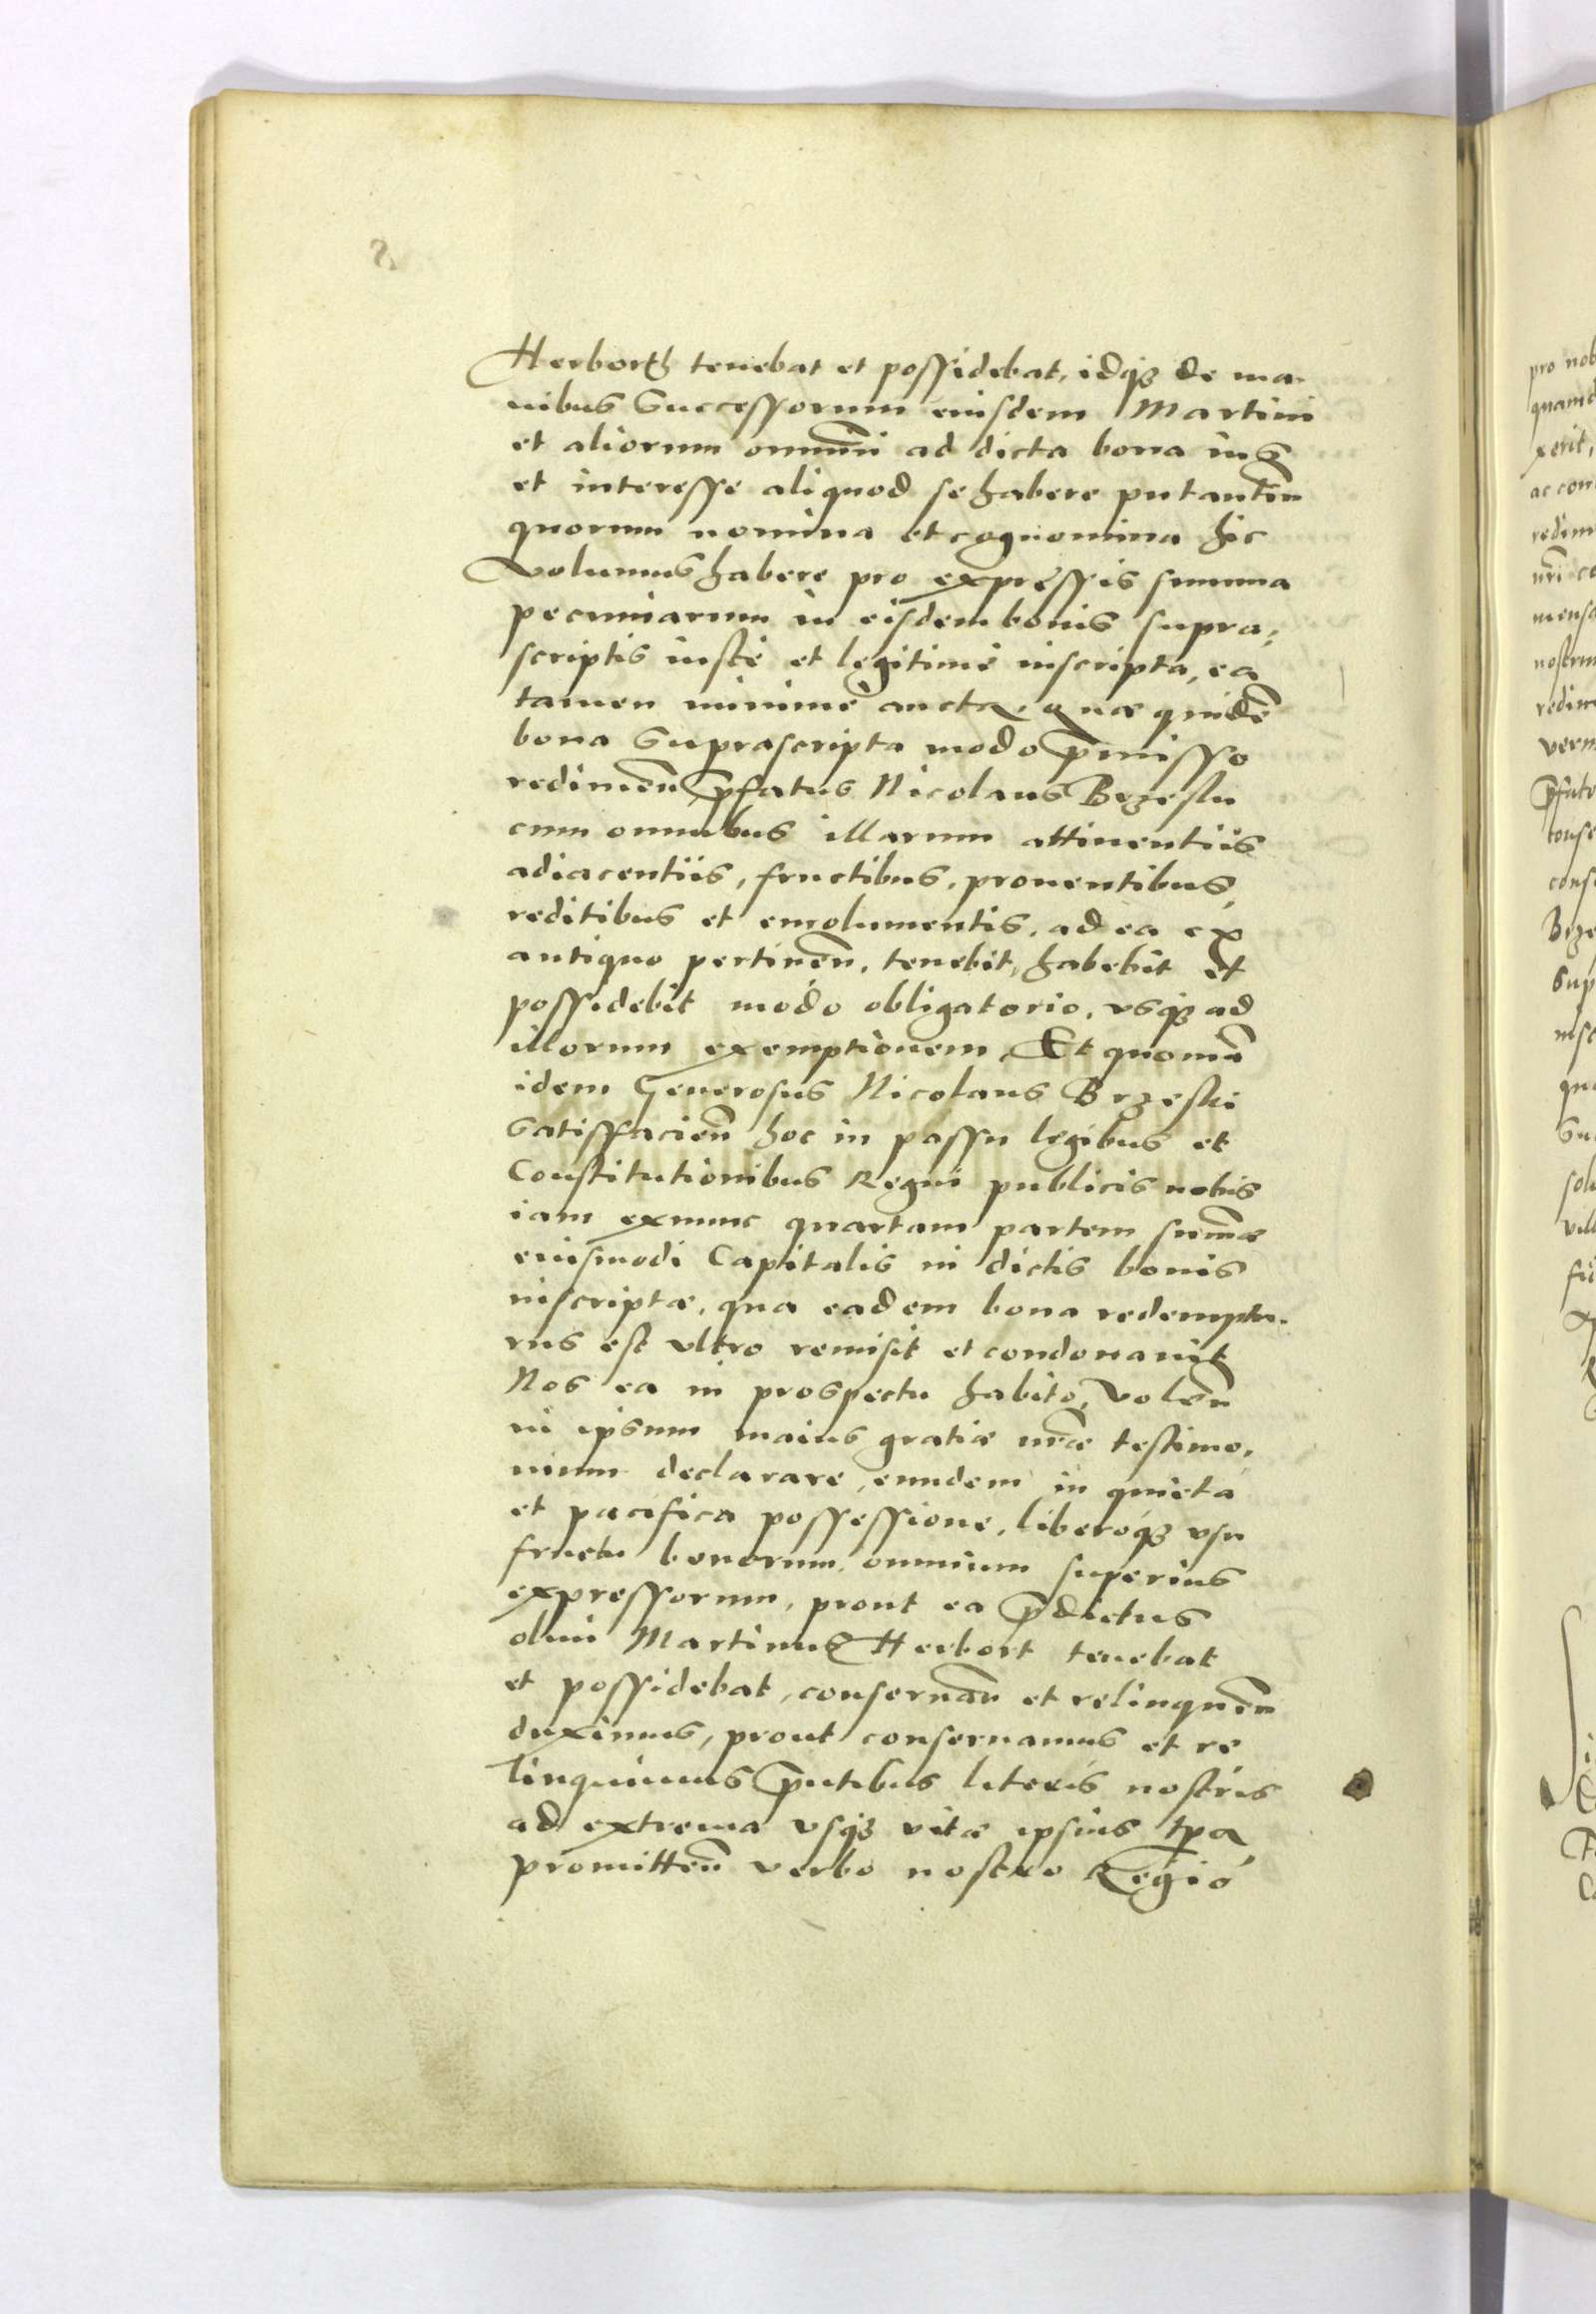 Herborth tenebat et possidebat, idq3 de ma-
nibus Successorum eiusdem Martini
et aliorum omniũ ad dicta bona ius
et interesse aliquod se habere putantiũ
quorum nomina et cognomina hic
volumus habere pro expressis summa
pecuniarum in eisdem bonis supra,
scriptis iustè et legitimè inscripta, ea
tamen minimè aucta, quæ quidẽ
bona Suprascripta modo p̃misso
redimeñ p̃fatus Nicolaus Brzeski
cum omnibus illarum attinentiis
adiacentiis, fructibus, prouentibus,
reditibus et emolumentis, ad ea ex
antiquo pertineñ, tenebit, habebit et
possidebit modo obligatorio, vsq3 ad
illorum exemptionem, Et quoniã
idem Generosus Nicolaus Brzeski
Satisfacieñ hoc in passu legibus et
Constitutionibus Regni publicis nobis
iam exnunc quartam partem sum̃æ
eiusmodi Capitalis in dictis bonis
inscriptæ, qua eadem bona redemptu-
rus est vltro remisit et condonauit
Nos ea in prospectu habito, voleñ
in ipsum maius gratiæ nr̃æ testimo,
nium declarare, eundem in quieta
et pacifica possessione, liberoq3 vsu
fructu bonorum omnium superius
expressorum, prout ea p̃dictus
olim Martinus Herbort tenebat
et possidebat, conseruañ et relinqueñ
duximus, prout conseruamus et re
linquimus p̃ntibus literis nostris
ad extrema vsq3 vitæ ipsius tp̃a,
promitteñ verbo nostro Regio